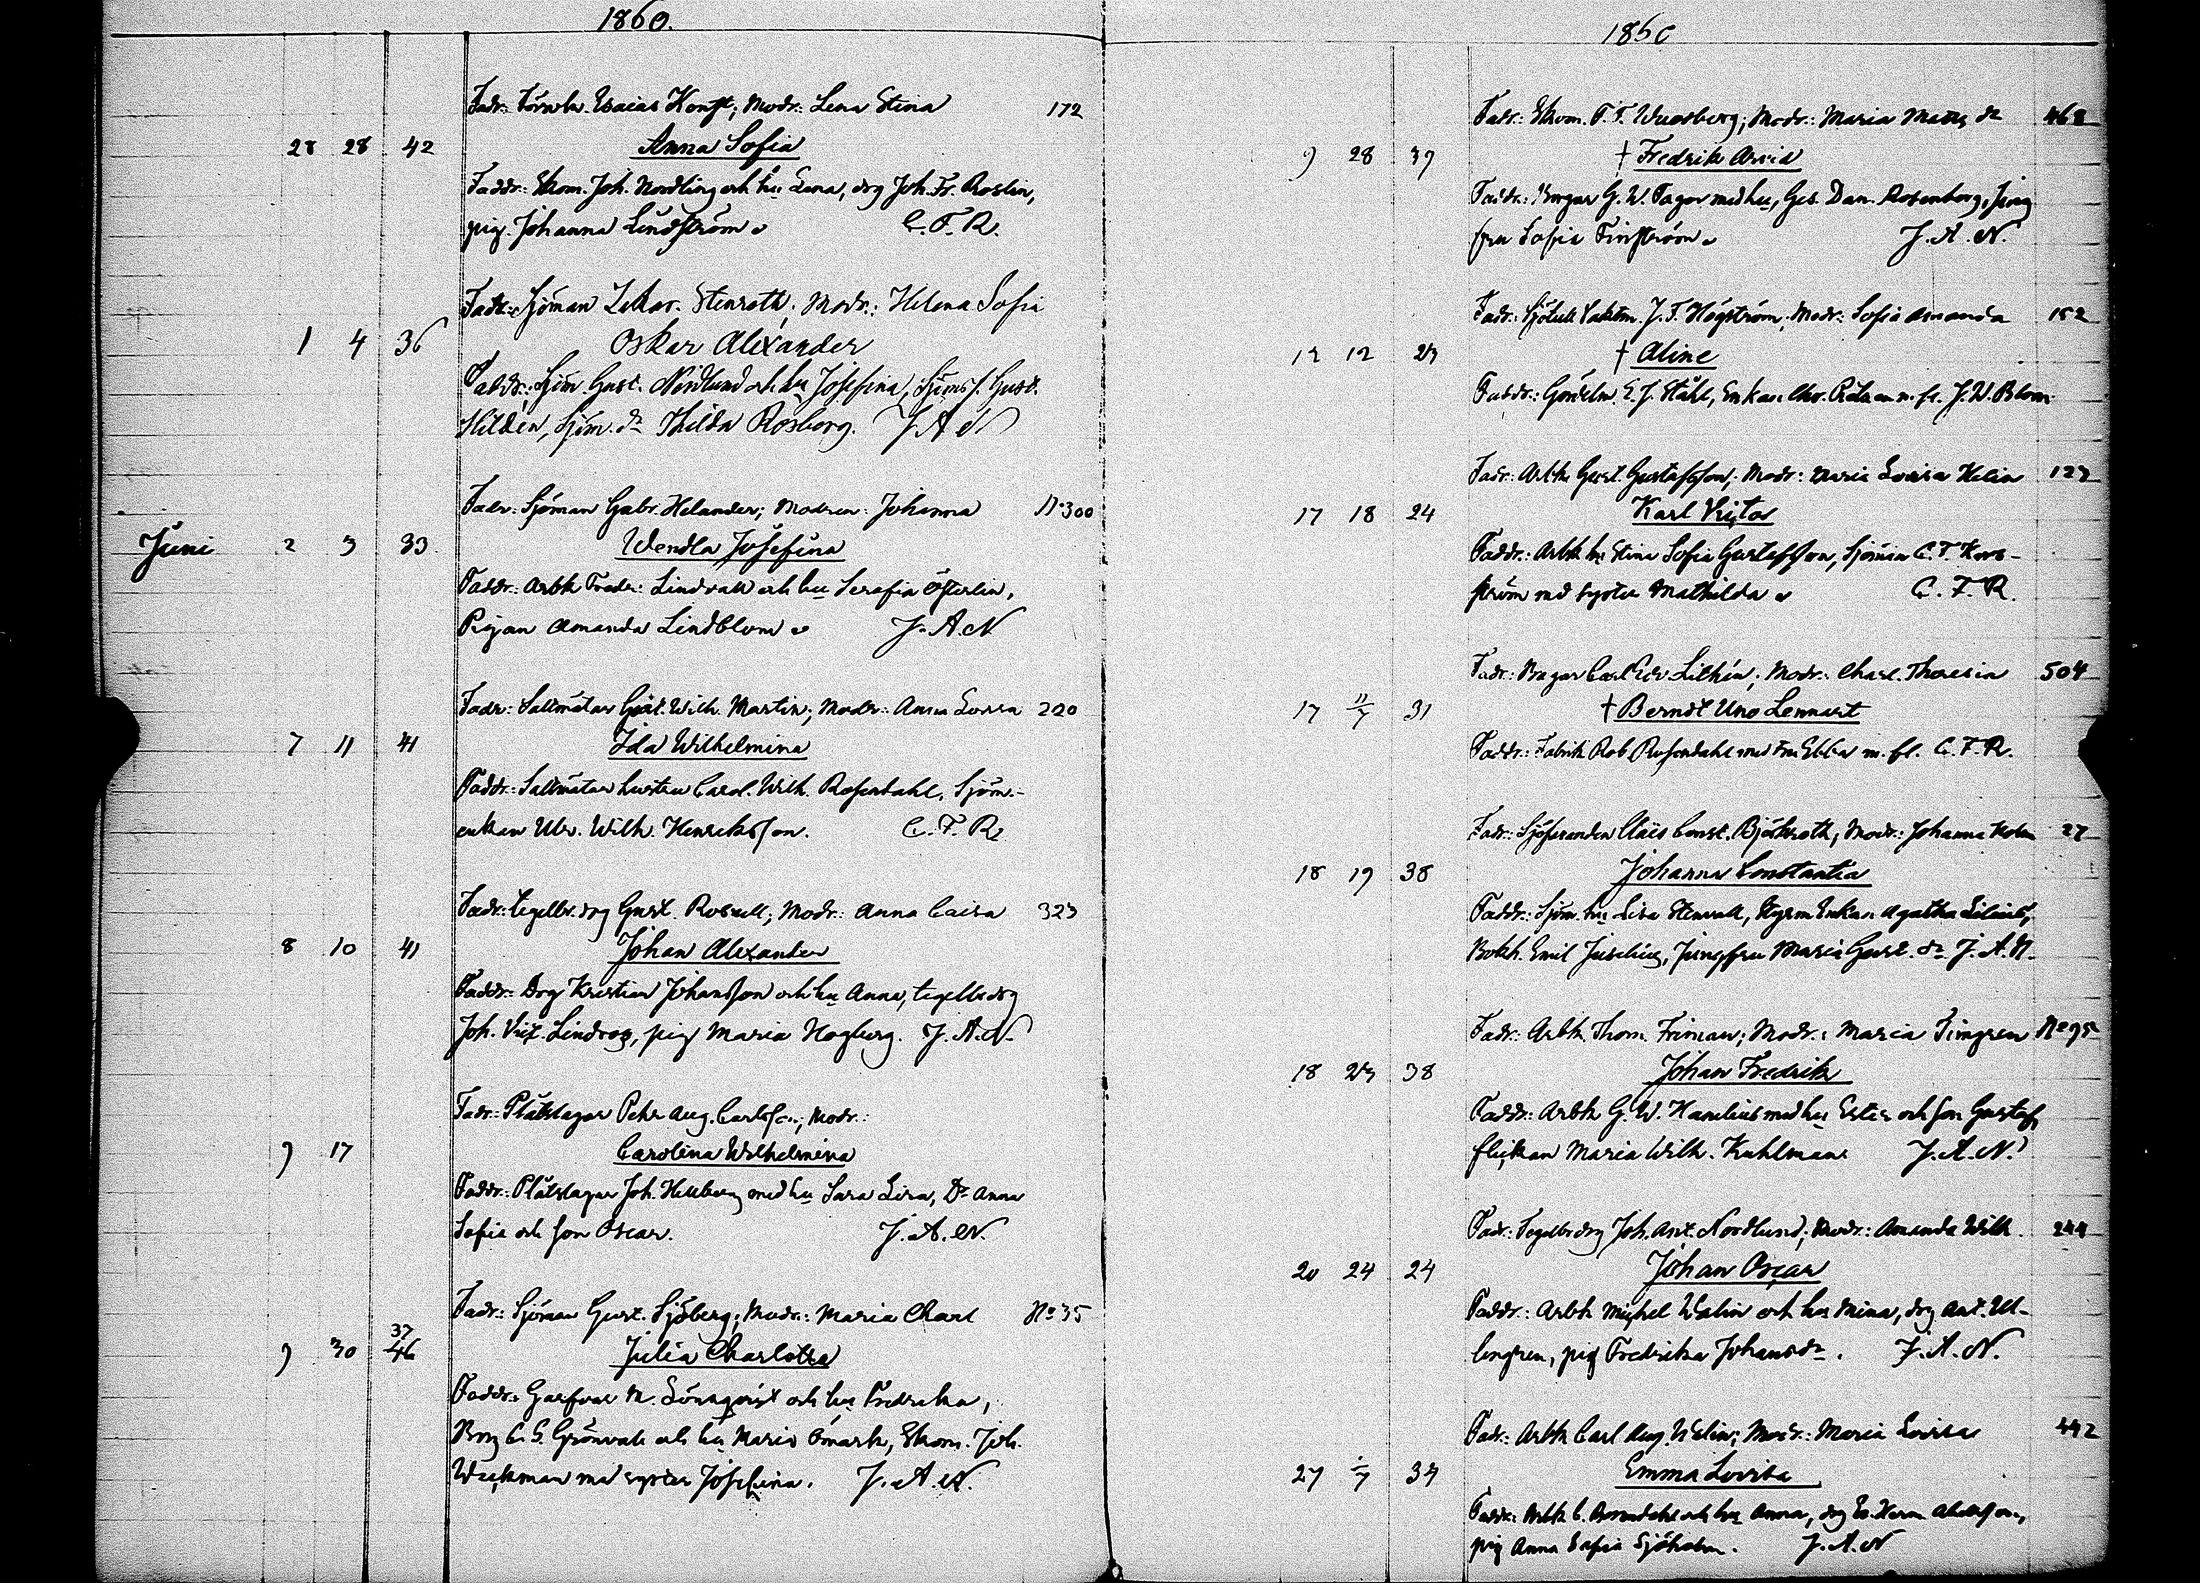 1860.
Fadr: Esaias Konst; Modr: Lena Stina 172
28 28 42 Anna Sofia
Faddr: Skom. Joh. Nordling och hu Lena, drg Joh. Fr. Roslin,
pig. Johanna Lindström C. F. R.
Fadr: Sjöman Zakar. Stenroth; Modr: Helena Sofia
1 4 36 Oskar Alexander
Faddr: Sjöm. Gust. Nordlund och hu Josefina, Sjöms s. Gust.
Hilden, Sjöm. dr Thilda Rosberg. J A N
Fadr: Sjöman Gabr. Helander; Modren: Johanna No 300
Juni 2 3 33 Wendla Josefina
Faddr: Arbk Fredr: Lindvall och hu Serafia Österlin,
Pigan Amanda Lindblom J. A. N
Fadr: Saltmätar Gust. Wilh. Martin; Modr: Anna Lovisa 220
7 11 41 Ida Wilhelmina
Faddr: Saltmätar hustru Carol. Wilh. Rosendahl, Sjöm.-
enkan Ulr. Wilh. Henriksson. C. F. R.
Fadr: tegelbr. drg Gust. Rosvell; Modr: Anna Caisa 323
8 10 41 Johan Alexander
Faddr: Drg Kristian Johansson och hu Anna, tegelbr drg
Joh. Vict. Lindroos, pig Maria Hogberg. J. A. N.
Fadr: Plåtslagar Pehr Aug. Carlsson; Modr:
9 17 Carolina Wilhelmina
Faddr: Plåtslagar Joh. Hellberg med hu Sara Lisa, Dr Anna
Sofia och son Oscar. J. A. N.
Fadr: Sjöman Gust. Sjöberg; Modr: Maria Charl No 35
37
9 30 46 Julia Charlotta
Faddr: Garfvar M. Lönnqvist och hu Fredrika,
Borg C. G. Grönvall och hu Maria Ömark, Skom. Joh.
Weckman med syster Josefina. J. A. N.
1860
Fadr: Skom. F. F. Widsberg; Modr: Maria Matts dr 468
9 28 39 † Fredrik Arvid
Faddr: Borgar G. W. Fager med hu, Ges. Dan. Rosenberg, Jung
fru Sofia Finström J. A. N.
Fadr: Sjötull Vaktm. J. F. Högström; Modr: Sofia Amanda 152
12 12 23 † Aline
Faddr: Gördelm. E. J. Ståhl, Enkan m. fl. J. W. Blom
Fadr: Arbk Gust. Gustafsson; Modr: Maria Lovisa Helin 127
17 18 24 Karl Victor
Faddr: Arbk hu Stina Sofia Gustafsson, Sjöman C. F. Kors-
ström med syster Mathilda C. F. R.
Fadr: Borgar Carl Edv Lilhén; Modr: Charl. Theresia 504
17 11/7 31 † Berndt Uno Lennart
Faddr: Fabrik Rob Rosendahl med Fru Ebba m. fl. C. F. R.
Fadr: Sjöfaranden Claës Const. Björkroth; Modr: Johanna Holm 27
18 19 38 Johanna Constantia
Faddr: Sjöm. hu Lisa Stenvall, Styrm Enkan Agatha Lilius,
Bokh. Emil Juselius, Jungfru Maria Gust. dr J. A. N.
Fadr: Arbk Thom. Friman; Modr: Maria Timgren No 95
18 23 38 Johan Fredrik
Faddr: Arbk G. W. Hamelius med hu Ester och son Gustaf,
flickan Maria Wilh. Kuhlman. J. A. N.
Fadr: Tegelbr drg Joh. Ant. Nordlund; Modr: Amanda Wilh. 244
20 24 24 Johan Oscar
Faddr: Arbk Michel Walin och hu Mina, drg Ant. Ul-
lengren, pig Fredrika Johansdr. J. A. N.
Fadr: Arbk Carl Aug. Welin; Modr: Maria Lovisa 442
27 1/7 34 Emma Lovisa
Faddr: Arbk C. och hu Anna, drg
pig Anna Sofia Sjöholm. J. A. N